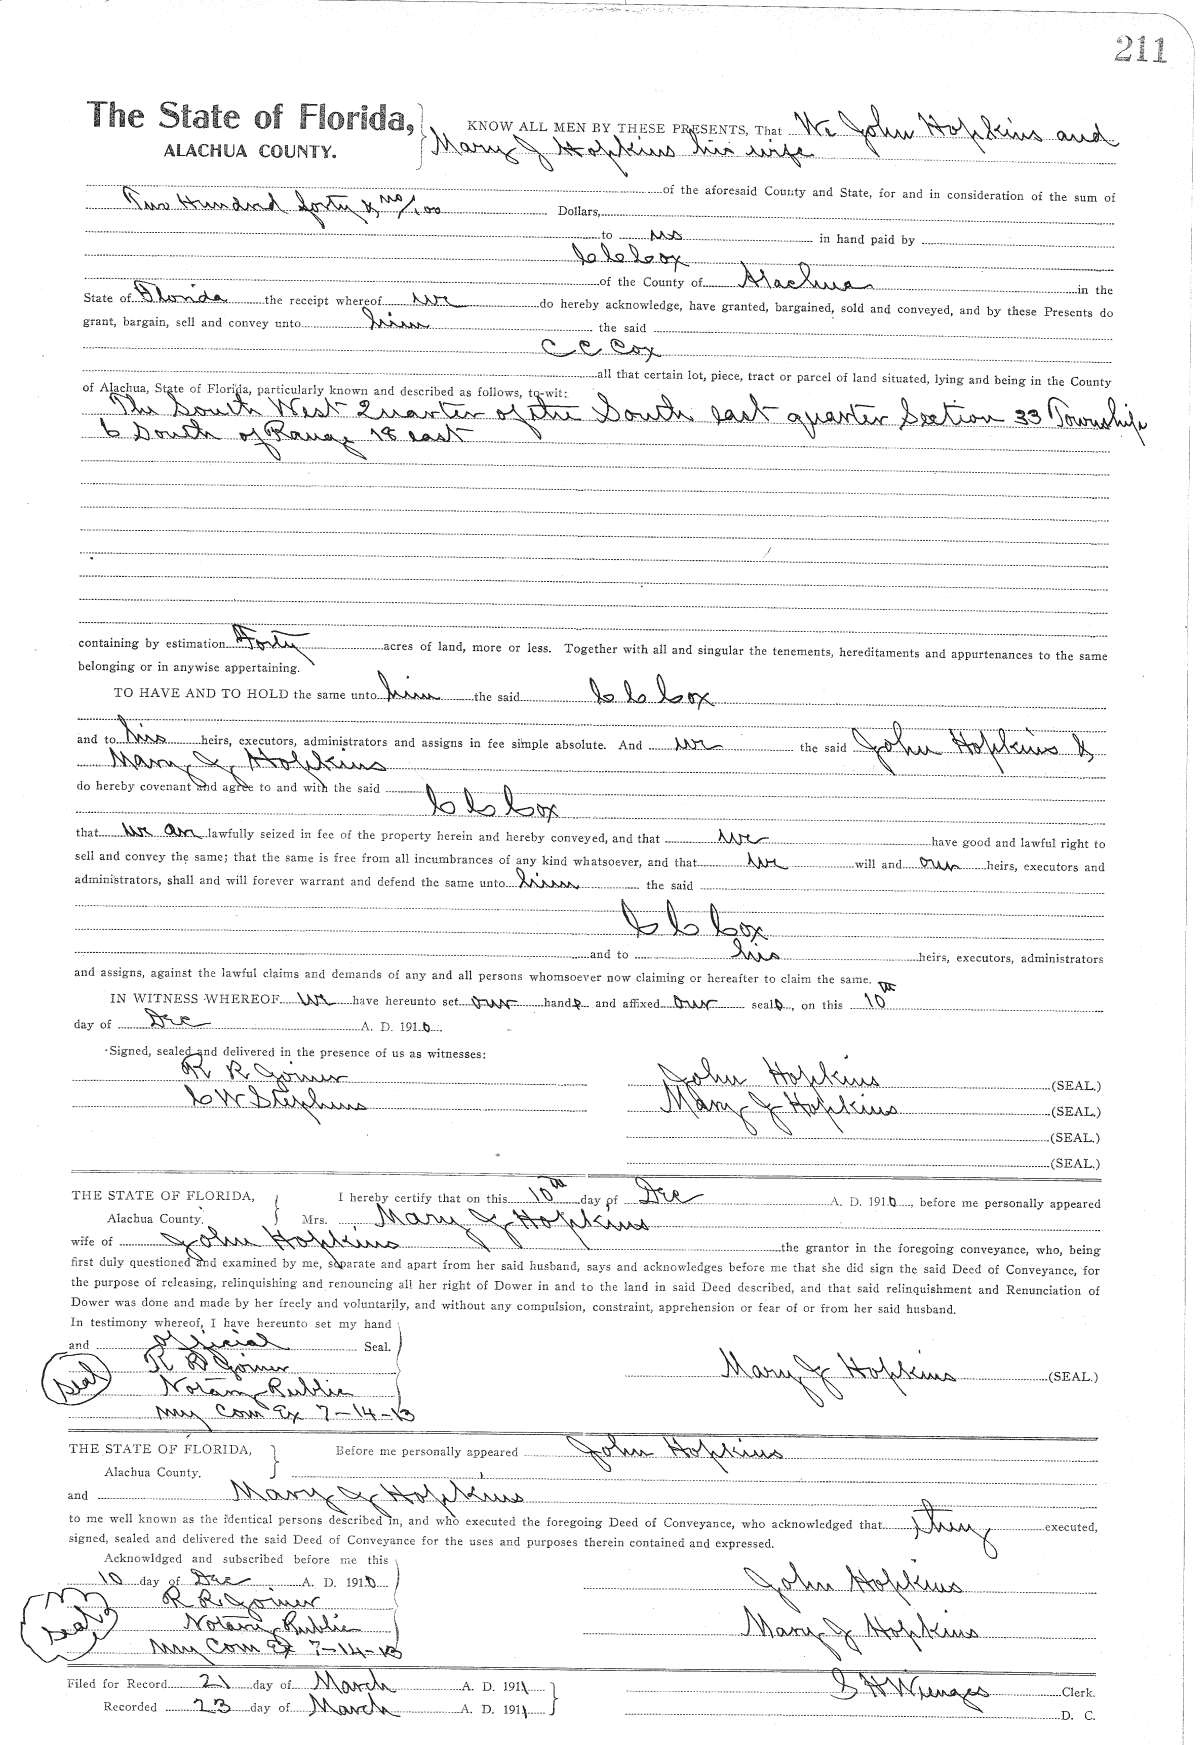 211
The State of Florida, KNOW ALL MEN BY THESE PRESENTS, That We John Hopkins and
ALACHUA COUNTY. Mary J Hopkins his wife
of the aforesaid County and State, for and in consideration of the sum of
Two Hundred forty & no/100 Dollars,
to us in hand paid by
C C Cox
of the County of Alachua in the
State of Florida the receipt whereof we do hereby acknowledge, have granted, bargained, sold and conveyed, and by these Presents do
grant, bargain, sell and convey unto him the said
C C Cox
all that certain lot, piece, tract or parcel of land situated, lying and being in the County
of Alachua, State of Florida, particularly known and described as follows, to-wit:
The South West Quarter of the South east quarter Section 33 Township
6 South of Range 18 east
containing by estimation Forty acres of land, more or less. Together with all and singular the tenements, hereditaments and appurtenances to the same
belonging or in anywise appertaining.
TO HAVE AND TO HOLD the same unto him the said C C Cox
and to his heirs, executors, administrators and assigns in fee simple absolute. And we the said John Hopkins &
Mary J Hopkins
do hereby covenant and agree to and with the said
C C Cox
that we are lawfully seized in fee of the property herein and hereby conveyed, and that we have good and lawful right to
sell and convey the same; that the same is free from all incumbrances of any kind whatsoever, and that we will and our heirs, executors and
administrators, shall and will forever warrant and defend the same unto him the said
C C Cox
and to his heirs, executors, administrators
and assigns, against the lawful claims and demands of any and all persons whomsoever now claiming or hereafter to claim the same.
IN WITNESS WHEREOF we have hereunto set our hands and affixed our seals, on this 10th
day of Dec A. D. 1910.
Signed, sealed and delivered in the presence of us as witnesses:
R R Joiner John Hopkins (SEAL.)
C W Stephens Mary J Hopkins (SEAL.)
(SEAL.)
(SEAL.)
THE STATE OF FLORIDA, I hereby certify that on this 10th day of Dec A. D. 1910, before me personally appeared
Alachua County. Mrs. Mary J Hopkins
wife of John Hopkins the grantor in the foregoing conveyance, who, being
first duly questioned and examined by me, separate and apart from her said husband, says and acknowledges before me that she did sign the said Deed of Conveyance, for
the purpose of releasing, relinquishing and renouncing all her right of Dower in and to the land in said Deed described, and that said relinquishment and Renunciation of
Dower was done and made by her freely and voluntarily, and without any compulsion, constraint, apprehension or fear of or from her said husband.
In testimony whereof, I have hereunto set my hand
and official Seal.
seal R R Joiner Mary J Hopkins (SEAL.)
Notary Public
My Com Ex 7-14-13
THE STATE OF FLORIDA, Before me personally appeared John Hopkins
Alachua County.
and Mary J Hopkins
to me well known as the identical persons described in, and who executed the foregoing Deed of Conveyance, who acknowledged that they executed,
signed, sealed and delivered the said Deed of Conveyance for the uses and purposes therein contained and expressed.
Acknowldged and subscribed before me this
10 day of Dec A. D. 1910 John Hopkins
R R Joiner
seal Notary Public Mary J Hopkins
My Com Ex 7-14-13
Filed for Record 21 day of March A. D. 1911 S H Wienges Clerk.
Recorded 23 day of March A. D. 1911 D. C.